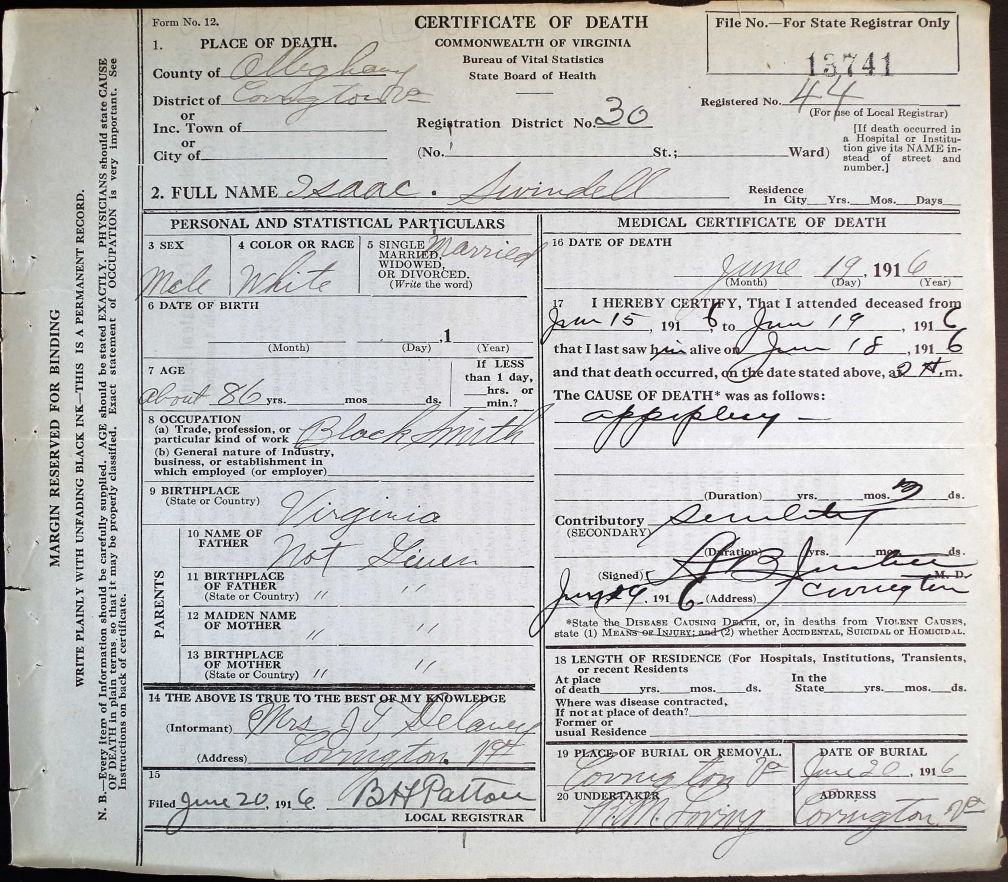 Form No. 12.
CERTIFICATE OF DEATH
COMMONWEALTH OF VIRGINIA
Bureau of Vital Statistics
State Board of Health
File No.—For State Registrar Only
13741
1. PLACE OF DEATH.
County of Alleghany
District of Covington Va
or
Inc. Town of
or
City of
Registration District No. 30
Registered No. 44
(For use of Local Registrar)
(No. St.; Ward)
[If death occurred in
a Hospital or Institu-
tion give its NAME in-
stead of street and
number.]
2. FULL NAME Isaac. Swindell
Residence
In City Yrs. Mos. Days
PERSONAL AND STATISTICAL PARTICULARS
3 SEX
Male
4 COLOR OR RACE
White
5 SINGLE
MARRIED,
WIDOWED,
OR DIVORCED.
(Write the word)
Married
6 DATE OF BIRTH
, 1
(Month) (Day) (Year)
7 AGE
about 86 yrs. mos ds.
If LESS
than 1 day,
hrs. or
min.?
8 OCCUPATION
(a) Trade, profession, or
particular kind of work Black Smith
(b) General nature of Industry,
business, or establishment in
which employed (or employer)
9 BIRTHPLACE
(State or Country) Virginia
PARENTS
10 NAME OF
FATHER Not Given
11 BIRTHPLACE
OF FATHER
(State or Country) " "
12 MAIDEN NAME
OF MOTHER " "
13 BIRTHPLACE
OF MOTHER
(State or Country) " "
14 THE ABOVE IS TRUE TO THE BEST OF MY KNOWLEDGE
(Informant) Mrs J T Delaney
(Address) Covington Va
15
Filed June 20, 1916. B H Patton
LOCAL REGISTRAR
MEDICAL CERTIFICATE OF DEATH
16 DATE OF DEATH
June 19, 1916
(Month) (Day) (Year)
17 I HEREBY CERTIFY, That I attended deceased from
Jun 15, 1916 to Jun 19, 1916
that I last saw him alive on Jun 18, 1916
and that death occurred, on the date stated above, at 2 A.m.
The CAUSE OF DEATH* was as follows:
(Duration) yrs. mos. 3 ds.
Contributory Senility
(SECONDARY)
(Duration) yrs. mos. ds.
(Signed) M. D.
Jun 19, 1916 (Address) Covington
*State the DISEASE CAUSING DEATH, or, in deaths from VIOLENT CAUSES,
state (1) MEANS OF INJURY; and (2) whether ACCIDENTAL, SUICIDAL OR HOMICIDAL.
18 LENGTH OF RESIDENCE (For Hospitals, Institutions, Transients,
or recent Residents
At place
of death yrs. mos. ds.
In the
State yrs. mos. ds.
Where was disease contracted,
If not at place of death?
Former or
usual Residence
19 PLACE OF BURIAL OR REMOVAL.
Covington Va
DATE OF BURIAL
June 20, 1916
20 UNDERTAKER
W. M. Loving
ADDRESS
Covington Va
MARGIN RESERVED FOR BINDING
WRITE PLAINLY WITH UNFADING BLACK INK—THIS IS A PERMANENT RECORD.
N. B.—Every item of Information should be carefully supplied. AGE should be stated EXACTLY. PHYSICIANS should state CAUSE
OF DEATH in plain terms, so that it may be properly classified. Exact statement of OCCUPATION is very important. See
Instructions on back of certificate.